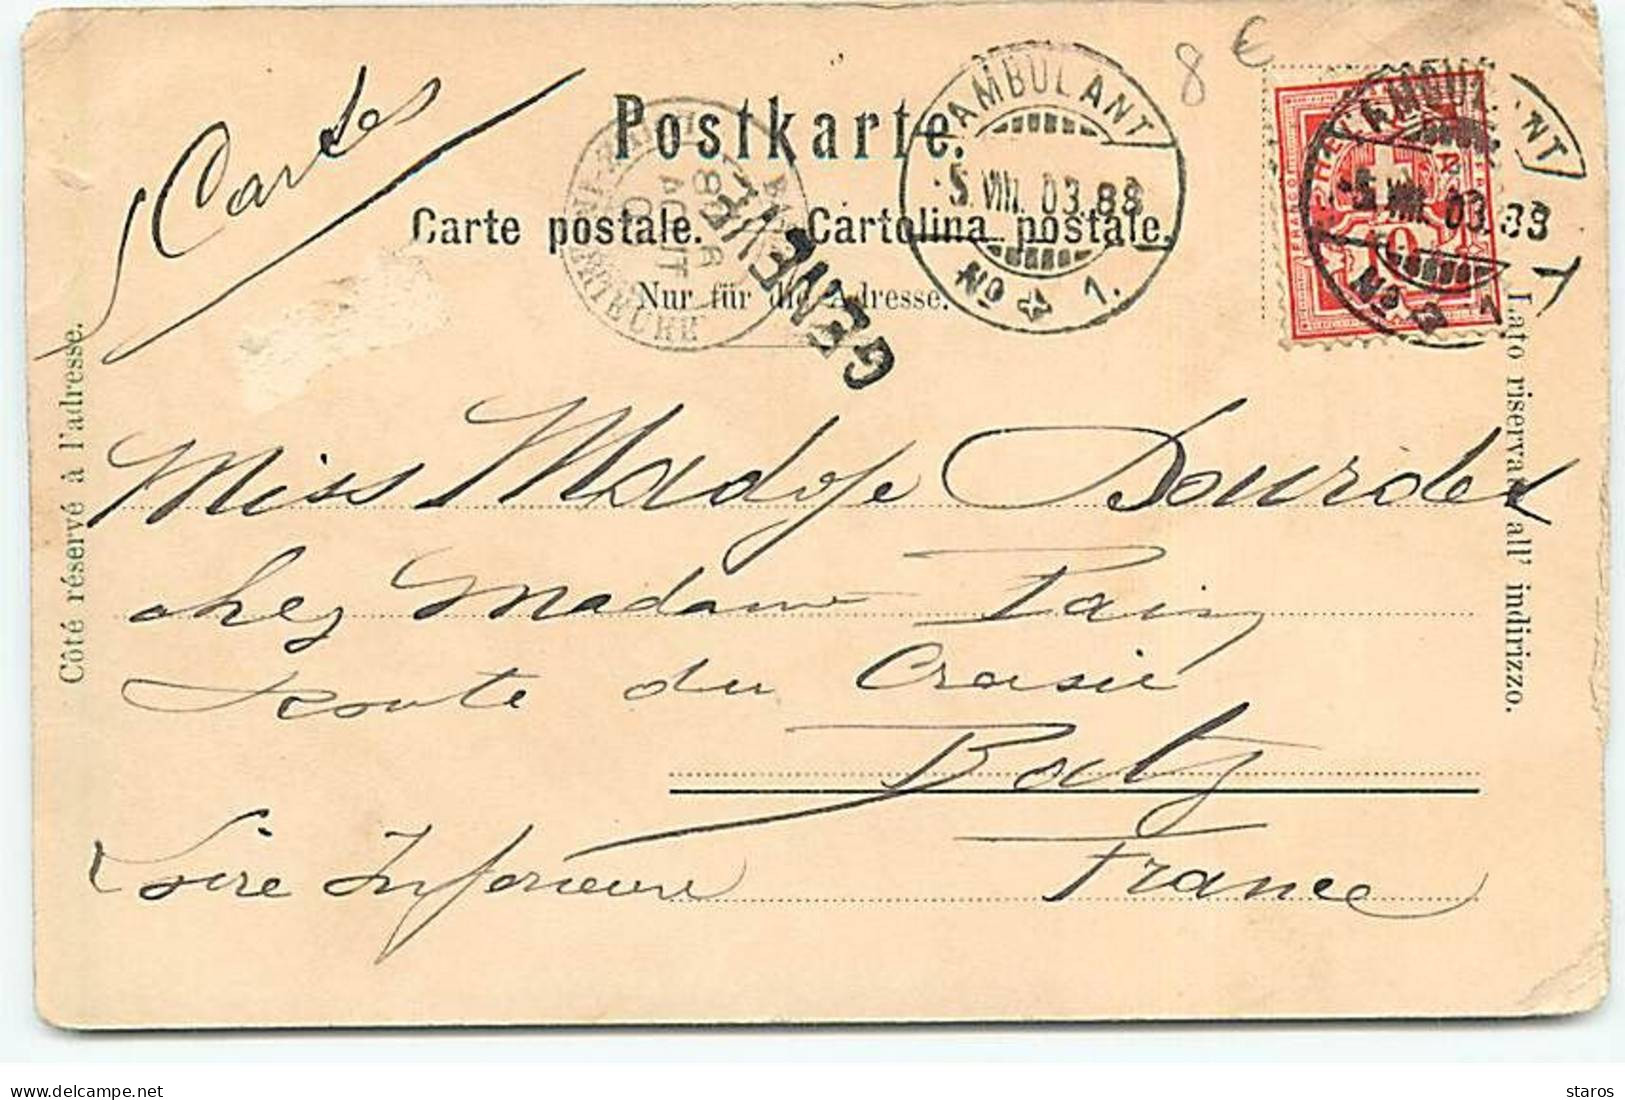 Cartes
8 €
Postkarte.
Carte postale. Cartolina postale.
Nur für die Adresse.
AMBULANT
5. VIII. 03. 8
No 1.
AMBULANT
5 VIII 03. 8
No 1
GENÈVE
AOUT
LOIRE
Côté réservé à l'adresse.
Lato riservato all' indirizzo.
Miss Madge Bourdet
chez Madame
route du Croisic
Batz
Loire Inférieure France
staros